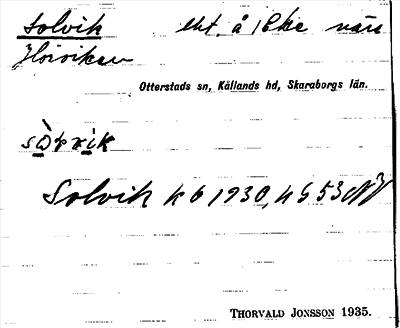 Solvik lht å 1 Eke värs
Horviken
Otterstads sn, Kållands hd, Skaraborgs län.
sòrvik
Solvik kb 1930, hS 53
THORVALD JONSSON 1935.